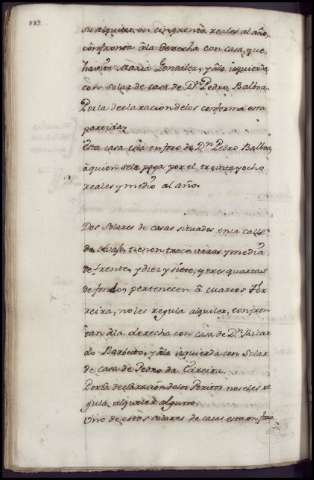 su alquiler en cinquenta reales al año,
confronta âla derecha con casa, que
havita Maria Gonzalez, yâla izquierda
con solar de casa de Dⁿ Pedro Balbⁿ
Por la declaracion de los
Esta casa esta en foro de Dⁿ Pedro Balboa,
âquien se le paga por el treinta y ocho
reales y medio al año.
Dos solares de casas situados en la calle
de tienen trece varas y media
de frente, y diez y siete, y tres quartas
de fondo, pertenecen â
rreira, no les regula alquiler, confron
tan âla derecha con casa de Dⁿ
do Barbeito, yâla izquierda con Solar
de casa de Pedro da Carreira.
Por la declaracion de los Peritos no se les re
gula alquiler alguno.
Uno de estos solares de casas esta en foro